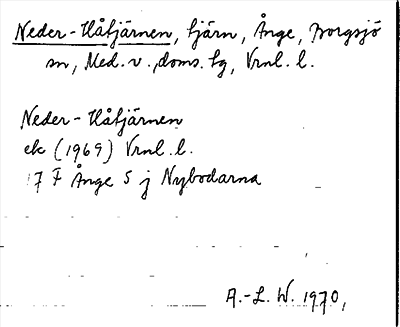 Neder-Håtjärnen, tjärn, Ånge, Borgsjö
sn, Med. v. doms. tg, Vrnl. l.
Neder-Håtjärnen
ek (1969) Vrnl. l.
17 F Ånge S j Nybodarna
A.-L. W. 1970,